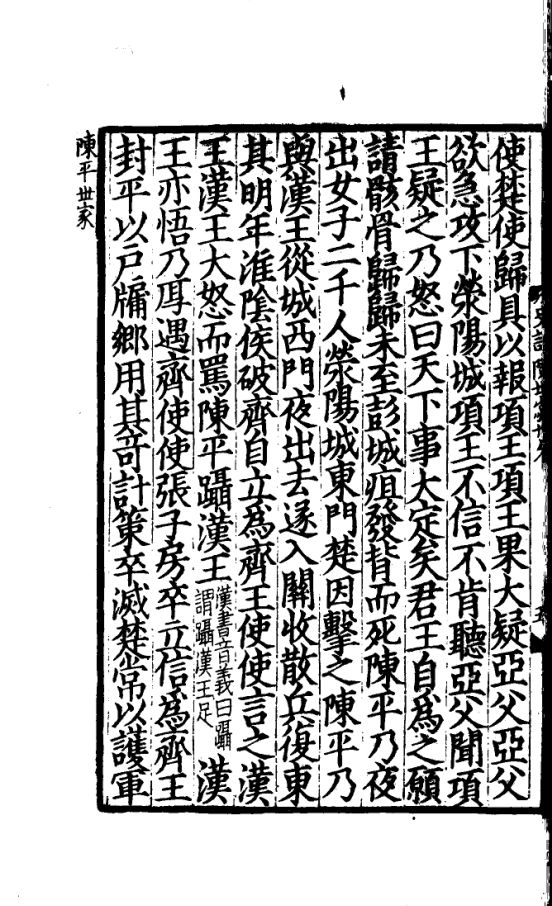 使楚使歸具以報項王項王果大疑亞父亞父
欲急攻下滎陽城項王不信不肯聽亞父聞項
王疑之乃怒曰天下事大定矣君王自爲之願
請骸骨歸歸未至彭城疽發背而死陳平乃夜
出女子二千人滎陽城東門楚因擊之陳平乃
與漢王從城西門夜出去遂入關收散兵復東
其明年淮陰侯破齊自立爲齊王使使言之漢
王漢王大怒而罵陳平躡漢王漢書音義曰躡謂躡漢王足漢
王亦悟乃厚遇齊使使張子房卒立信爲齊王
封平以戶牖鄉用其奇計策卒滅楚常以護軍
陳平世家